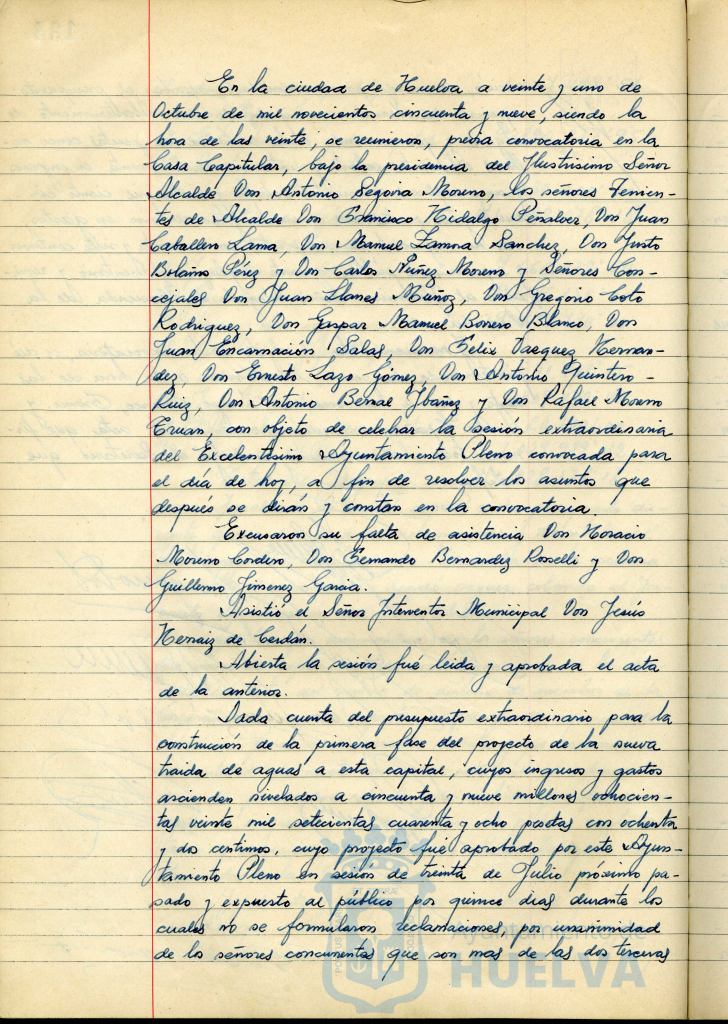 En la ciudad de Huelva a veinte y uno de
Octubre de mil novecientos cincuenta y nueve, siendo la
hora de las veinte, se reunieron, previa convocatoria en la
Casa Capitular, bajo la presidencia del Ilustrisimo Señor
Alcalde Don Antonio Segovia Moreno, los señores Tenien-
tes de Alcalde Don Francisco Hidalgo Peñalver, Don Juan
Caballero Lama, Don Manuel Zamora Sanchez, Don Justo
Bolaños Pérez y Don Carlos Núñez Moreno y Señores Con-
cejales Don Juan Llanes Muñoz, Don Gregorio Coto
Rodriguez, Don Gaspar Manuel Borrero Blanco, Don
Juan Encarnación Salas, Don Felix Vazquez Hernan-
dez, Don Ernesto Lazo Gómez, Don Antonio Quintero-
Ruiz, Don Antonio Bernal Ybañez y Don Rafael Moreno
Truan, con objeto de celebrar la sesión extraordinaria
del Excelentisimo Ayuntamiento Pleno convocada para
el día de hoy, a fin de resolver los asuntos que
después se dirán y constan en la convocatoria.
Excusaron su falta de asistencia Don Horacio
Moreno Cordero, Don Fernando Bernardez Rosselli y Don
Guillermo Jimenez Garcia.
Asistió el Señor Interventor Municipal Don Jesús
Hernaiz de Cerdán.
Abierta la sesión fué leida y aprobada el acta
de la anterior.
Dada cuenta del presupuesto extraordinario para la
construcción de la primera fase del proyecto de la nueva
traida de aguas a esta capital, cuyos ingresos y gastos
ascienden nivelados a cincuenta y nueve millones ochocien-
tas veinte mil setecientas cuarenta y ocho pesetas con ochenta
y dos centimos, cuyo proyecto fué aprobado por este Ayun-
tamiento Pleno en sesión de treinta de Julio próximo pa-
sado y expuesto al público por quince dias durante los
cuales no se formularon reclamaciones, por unanimidad
de los señores concurrentes que son mas de las dos terceras
Ayuntamiento
HUELVA